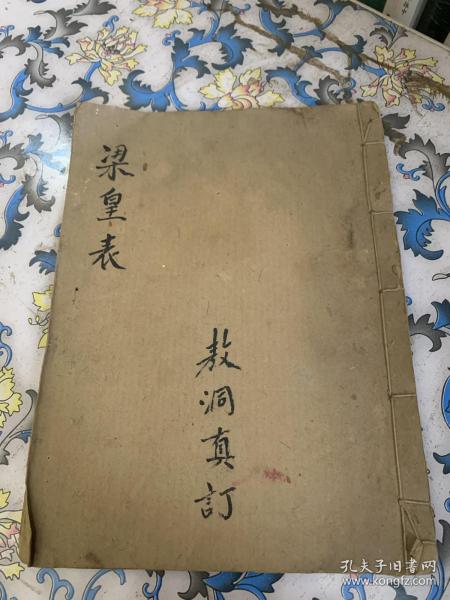 梁皇表
敖洞真訂
孔夫子旧书网
www.kongfz.com